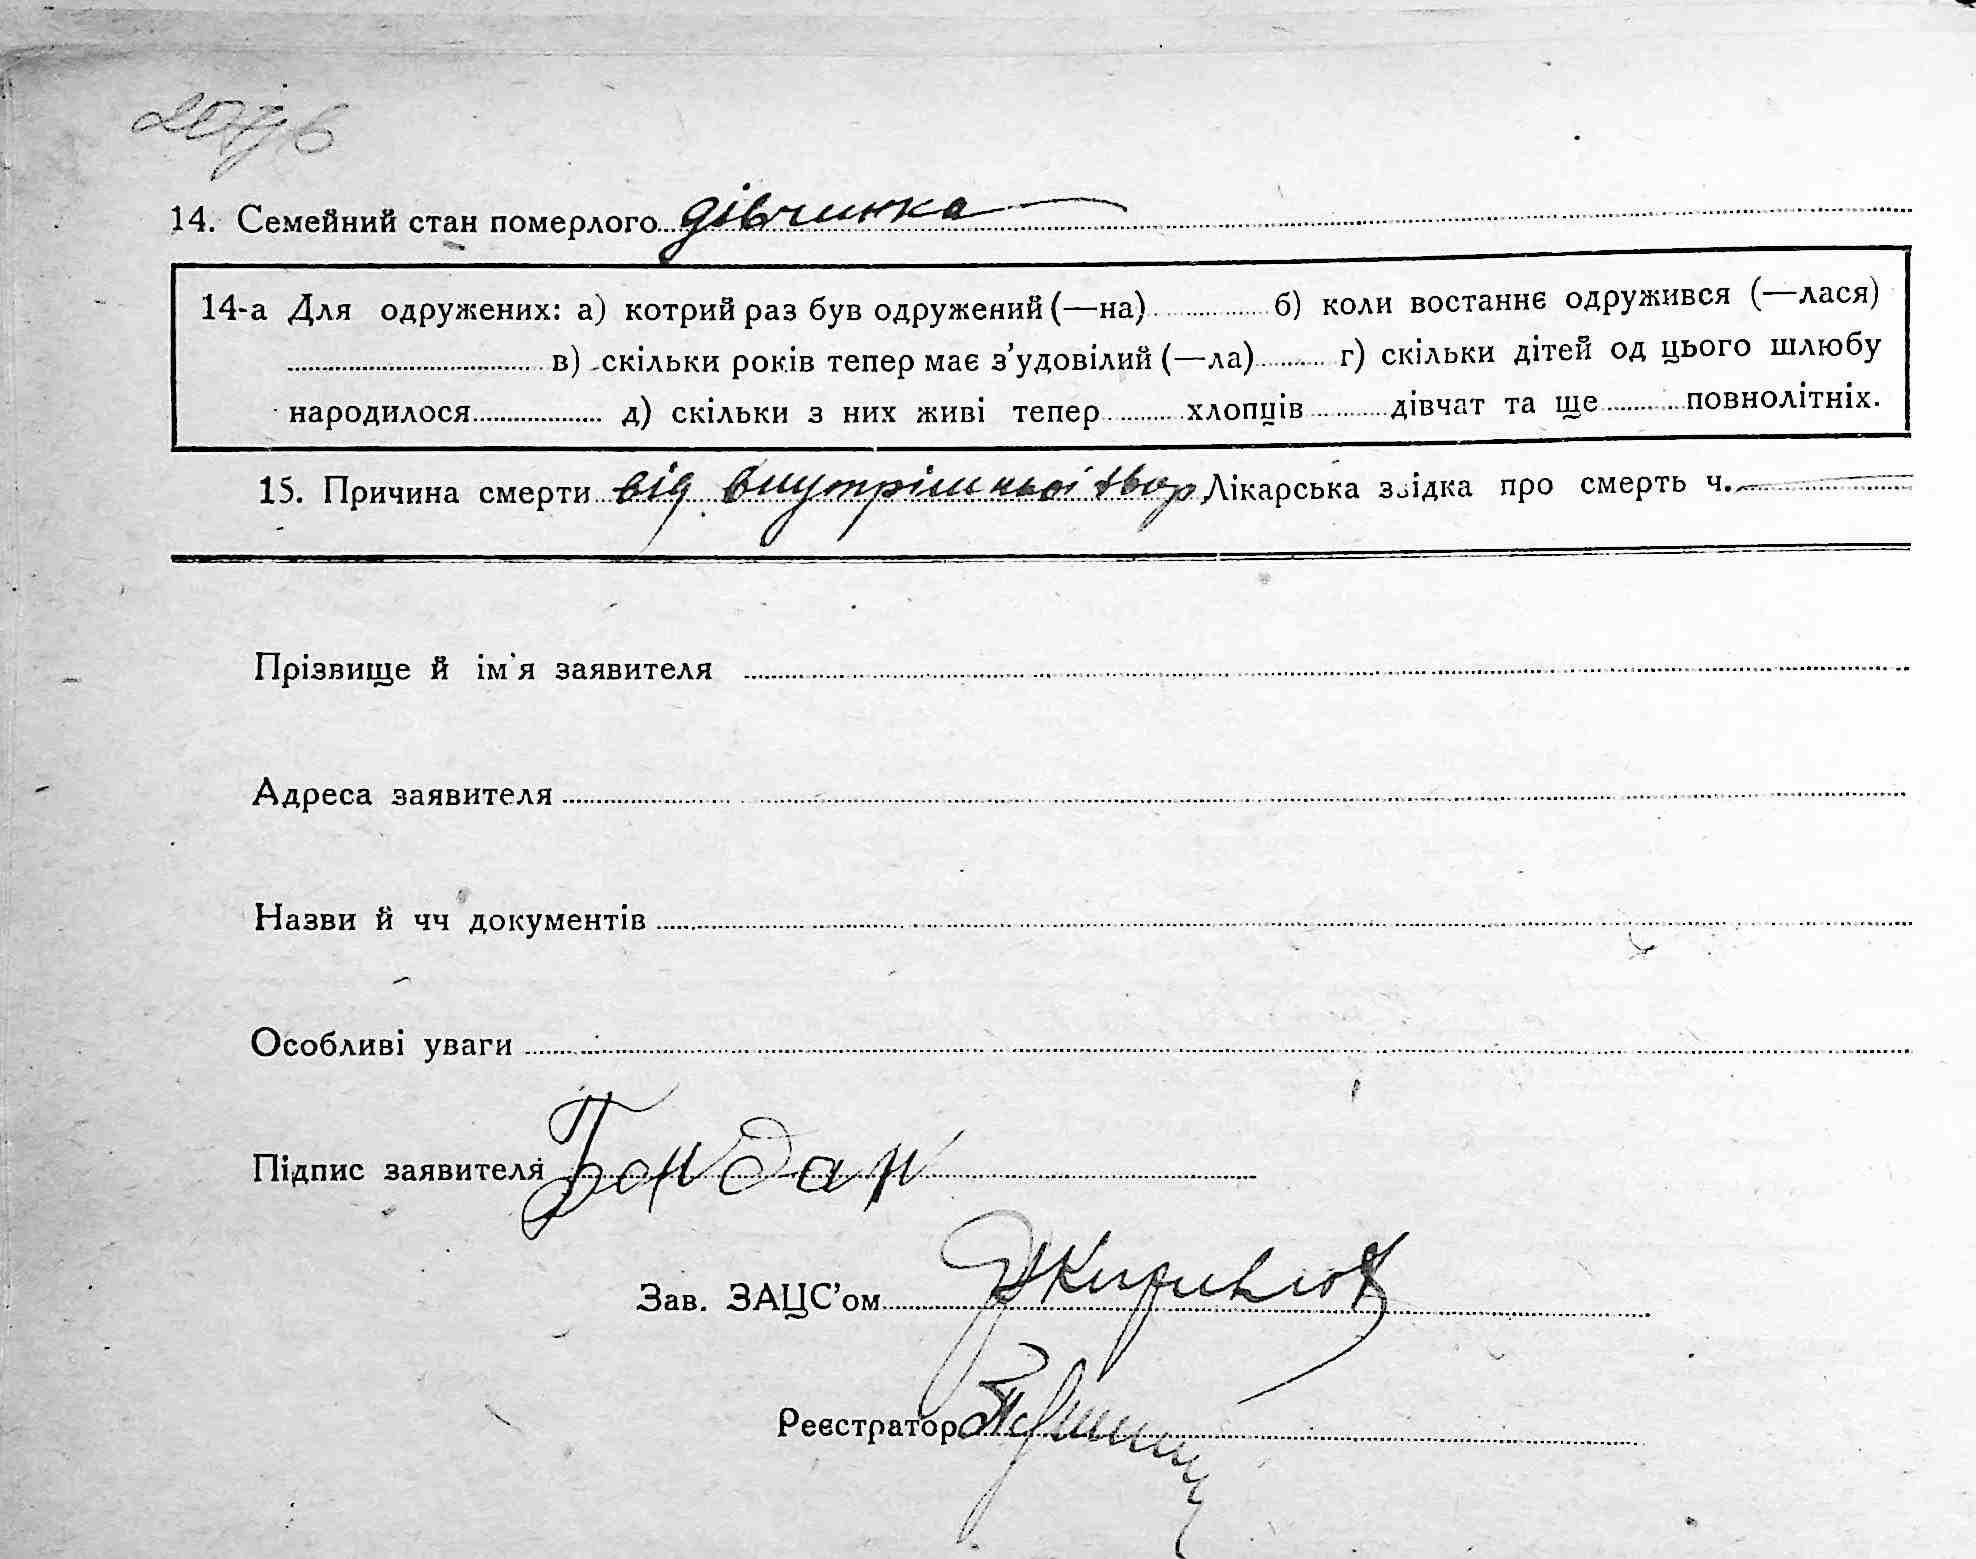 14. Семейний стан померлого дівчинка
14-а Для одружених: а) котрий раз був одружений (—на) б) коли востаннє одружився (—лася)
в) скільки років тепер має з'удовілий (—ла) г) скільки дітей од цього шлюбу
народилося д) скільки з них живі тепер хлопців дівчат та ще повнолітніх.
15. Причина смерти від внутрішньої хвор Лікарська звідка про смерть ч.
Прізвище й ім'я заявителя
Адреса заявителя
Назви й чч документів
Особливі уваги
Підпис заявителя Бондар
Зав. ЗАЦС'ом
Реєстратор